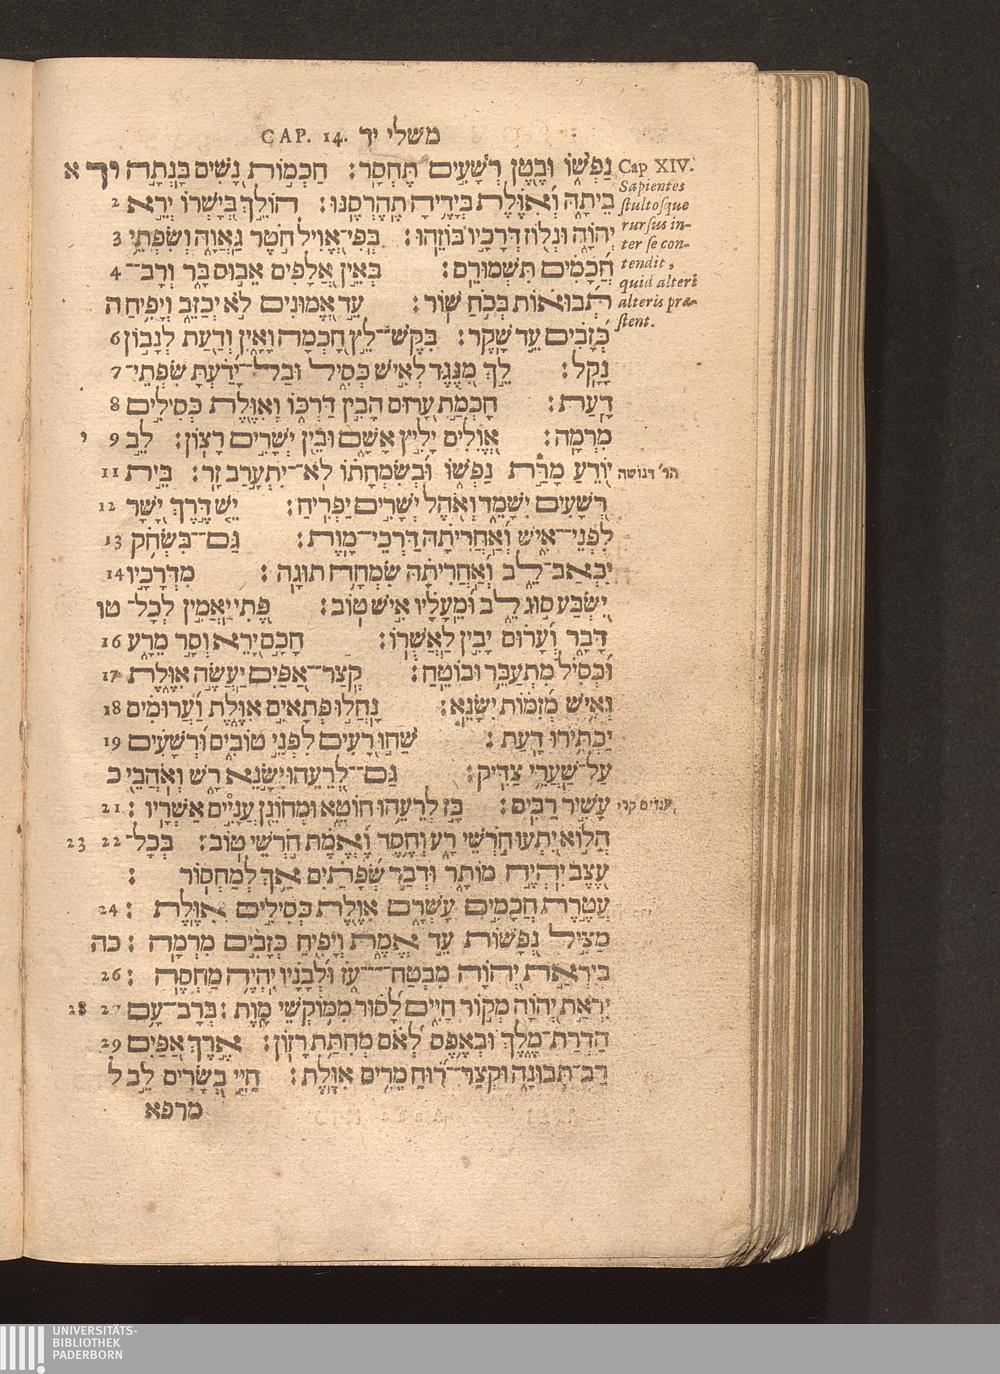 CAP. 14. משלי יד
נַפְשׁוֹ וּבֶטֶן רְשָׁעִים תֶּחְסָר׃ חַכְמוֹת נָשִׁים בָּנְתָה יד א
בֵיתָהּ וְאִוֶּלֶת בְּיָדֶיהָ תֶהֶרְסֶנּוּ׃ הוֹלֵךְ בְּיָשְׁרוֹ יְרֵא 2
יְהוָה וּנְלוֹז דְּרָכָיו בּוֹזֵהוּ׃ בְּפִי־אֱוִיל חֹטֶר גַּאֲוָה וְשִׂפְתֵי 3
חֲכָמִים תִּשְׁמוּרֵם׃ בְּאֵין אֲלָפִים אֵבוּס בָּר וְרָב־ 4
תְּבוּאוֹת בְּכֹחַ שׁוֹר׃ עֵד אֱמוּנִים לֹא יְכַזֵּב וְיָפִיחַ ה
כְּזָבִים עֵד שָׁקֶר׃ בִּקֶּשׁ־לֵץ חָכְמָה וָאָיִן וְדַעַת לְנָבוֹן 6
נָקָל׃ לֵךְ מִנֶּגֶד לְאִישׁ כְּסִיל וּבַל־יָדַעְתָּ שִׂפְתֵי־ 7
דָעַת׃ חָכְמַת עָרוּם הָבִין דַּרְכּוֹ וְאִוֶּלֶת כְּסִילִים 8
מִרְמָה׃ אֱוִלִים יָלִיץ אָשָׁם וּבֵין יְשָׁרִים רָצוֹן׃ לֵב 9 י
יוֹדֵעַ מָרַּת נַפְשׁוֹ וּבְשִׂמְחָתוֹ לֹא־יִתְעָרַב זָר׃ בֵּית 11
רְשָׁעִים יִשָּׁמֵד וְאֹהֶל יְשָׁרִים יַפְרִיחַ׃ יֵשׁ דֶּרֶךְ יָשָׁר 12
לִפְנֵי־אִישׁ וְאַחֲרִיתָהּ דַּרְכֵי־מָוֶת׃ גַּם־בִּשְׂחֹק 13
יִכְאַב־לֵב וְאַחֲרִיתָהּ שִׂמְחָה תוּגָה׃ מִדְּרָכָיו 14
יִשְׂבַּע סוּג לֵב וּמֵעָלָיו אִישׁ טוֹב׃ פֶּתִי יַאֲמִין לְכָל־ טו
דָּבָר וְעָרוּם יָבִין לַאֲשֻׁרוֹ׃ חָכָם יָרֵא וְסָר מֵרָע 16
וּכְסִיל מִתְעַבֵּר וּבוֹטֵחַ׃ קְצַר־אַפַּיִם יַעֲשֶׂה אִוֶּלֶת 17
וְאִישׁ מְזִמּוֹת יִשָּׂנֵא׃ נָחֲלוּ פְתָאיִם אִוֶּלֶת וַעֲרוּמִים 18
יַכְתִּירוּ דָעַת׃ שַׁחוּ רָעִים לִפְנֵי טוֹבִים וּרְשָׁעִים 19
עַל־שַׁעֲרֵי צַדִּיק׃ גַּם־לְרֵעֵהוּ יִשָּׂנֵא רָשׁ וְאֹהֲבֵי כ
עָשִׁיר רַבִּים׃ בָּז לְרֵעֵהוּ חוֹטֵא וּמְחוֹנֵן עֲנָיִים אַשְׁרָיו׃ 21
הֲלוֹא יִתְעוּ חֹרְשֵׁי רָע וְחֶסֶד וֶאֱמֶת חֹרְשֵׁי טוֹב׃ בְּכָל־ 22 23
עֶצֶב יִהְיֶה מוֹתָר וּדְבַר שְׂפָתַיִם אַךְ לְמַחְסוֹר׃
עֲטֶרֶת חֲכָמִים עָשְׁרָם אִוֶּלֶת כְּסִילִים אִוֶּלֶת׃ 24
מַצִּיל נְפָשׁוֹת עֵד אֱמֶת וְיָפִיחַ כְּזָבִים מִרְמָה׃ כה
בְּיִרְאַת יְהוָה מִבְטַח־עֹז וּלְבָנָיו יִהְיֶה מַחְסֶה׃ 26
יִרְאַת יְהוָה מְקוֹר חַיִּים לָסוּר מִמּוֹקְשֵׁי מָוֶת׃ בְּרָב־עָם 27 28
הַדְרַת־מֶלֶךְ וּבְאֶפֶס לְאֹם מְחִתַּת רָזוֹן׃ אֶרֶךְ אַפַּיִם 29
רַב־תְּבוּנָה וּקְצַר־רוּחַ מֵרִים אִוֶּלֶת׃ חַיֵּי בְשָׂרִים לֵב ל
מרפא
Cap XIV.
Sapientes
stultosque
rursus in-
ter se con-
tendit,
quid alteri
alteris præ-
stent.
הר׳ דגושה
ענוים קרי
UNIVERSITÄTS-
BIBLIOTHEK
PADERBORN